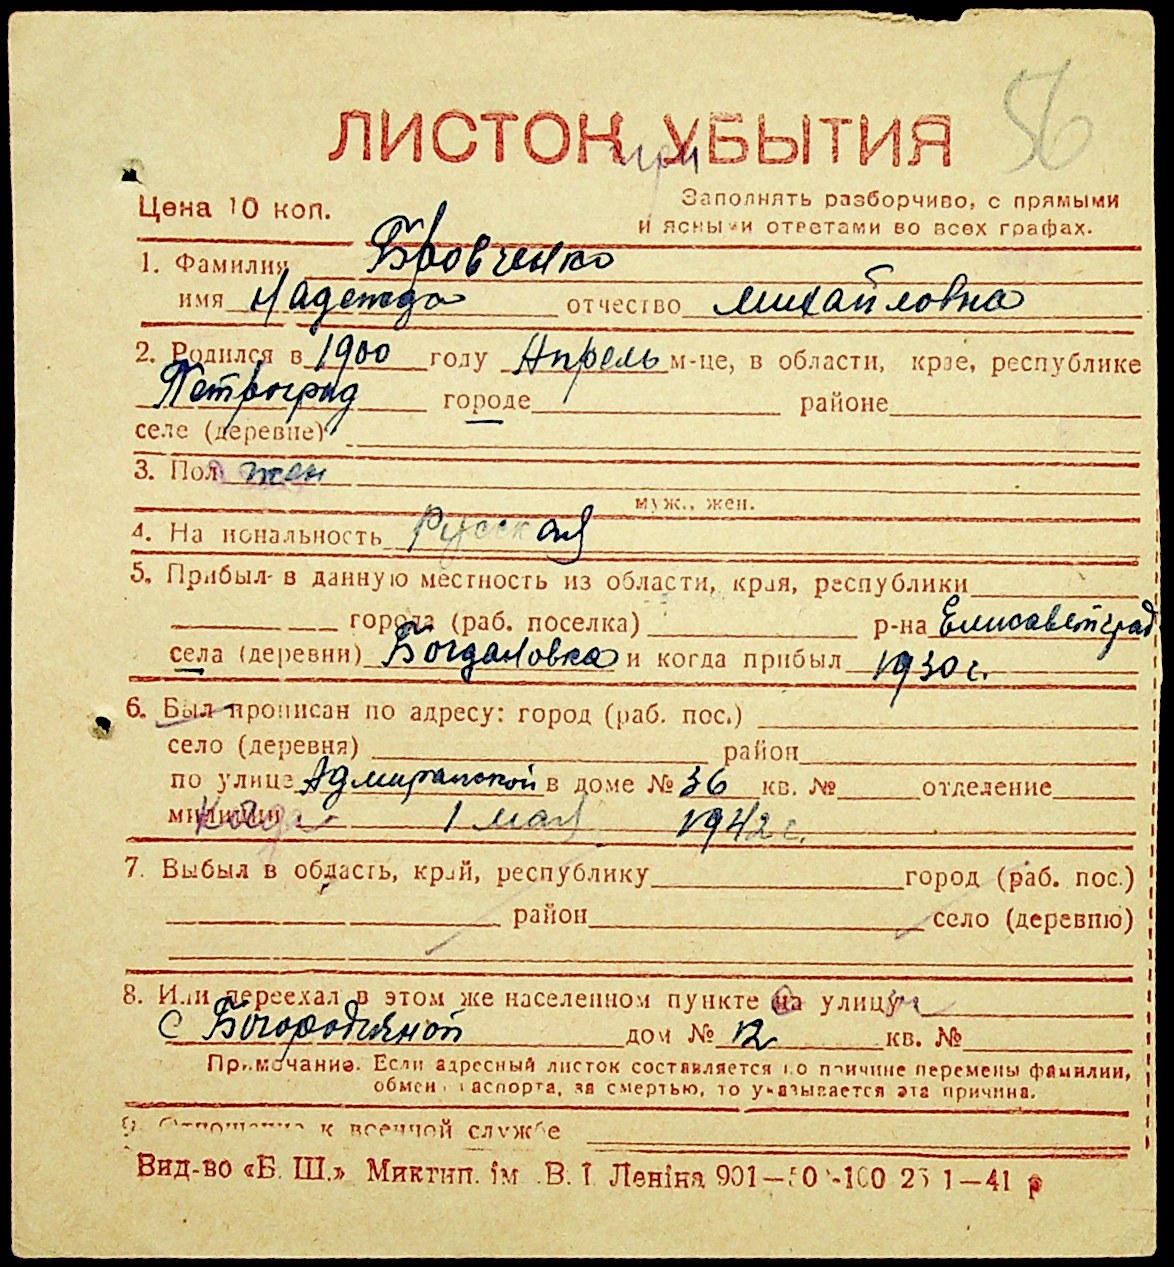 56
ЛИСТОК УБЫТИЯ
при
Цена 10 коп.
Заполнять разборчиво, с прямыми
и ясными ответами во всех графах.
1. Фамилия Бровченко
имя Надежда отчество Михайловна
2. Родился в 1900 году Апрель м-це, в области, крае, республике
Петроград городе районе
селе (деревне)
3. Пол жен
муж., жен.
4. Национальность Русская
5. Прибыл в данную местность из области, края, республики
города (раб. поселка) р-на Елисаветград
села (деревни) Богдановка и когда прибыл 1930 г.
6. Был прописан по адресу: город (раб. пос.)
село (деревня) район
по улице Адмиральской в доме № 36 кв. № отделение
милиции Когда 1 мая 1942 г.
7. Выбыл в область, край, республику город (раб. пос.)
район село (деревню)
8. Или переехал в этом же населенном пункте на улицу
с Богородичной дом № 12 кв. №
Примечание. Если адресный листок составляется по причине перемены фамилии,
обмена паспорта, за смертью, то указывается эта причина.
9. Отношение к военной службе
Вид-во «Б. Ш.» Миктип. ім. В. І. Леніна 901—50 -100 25 1—41 р